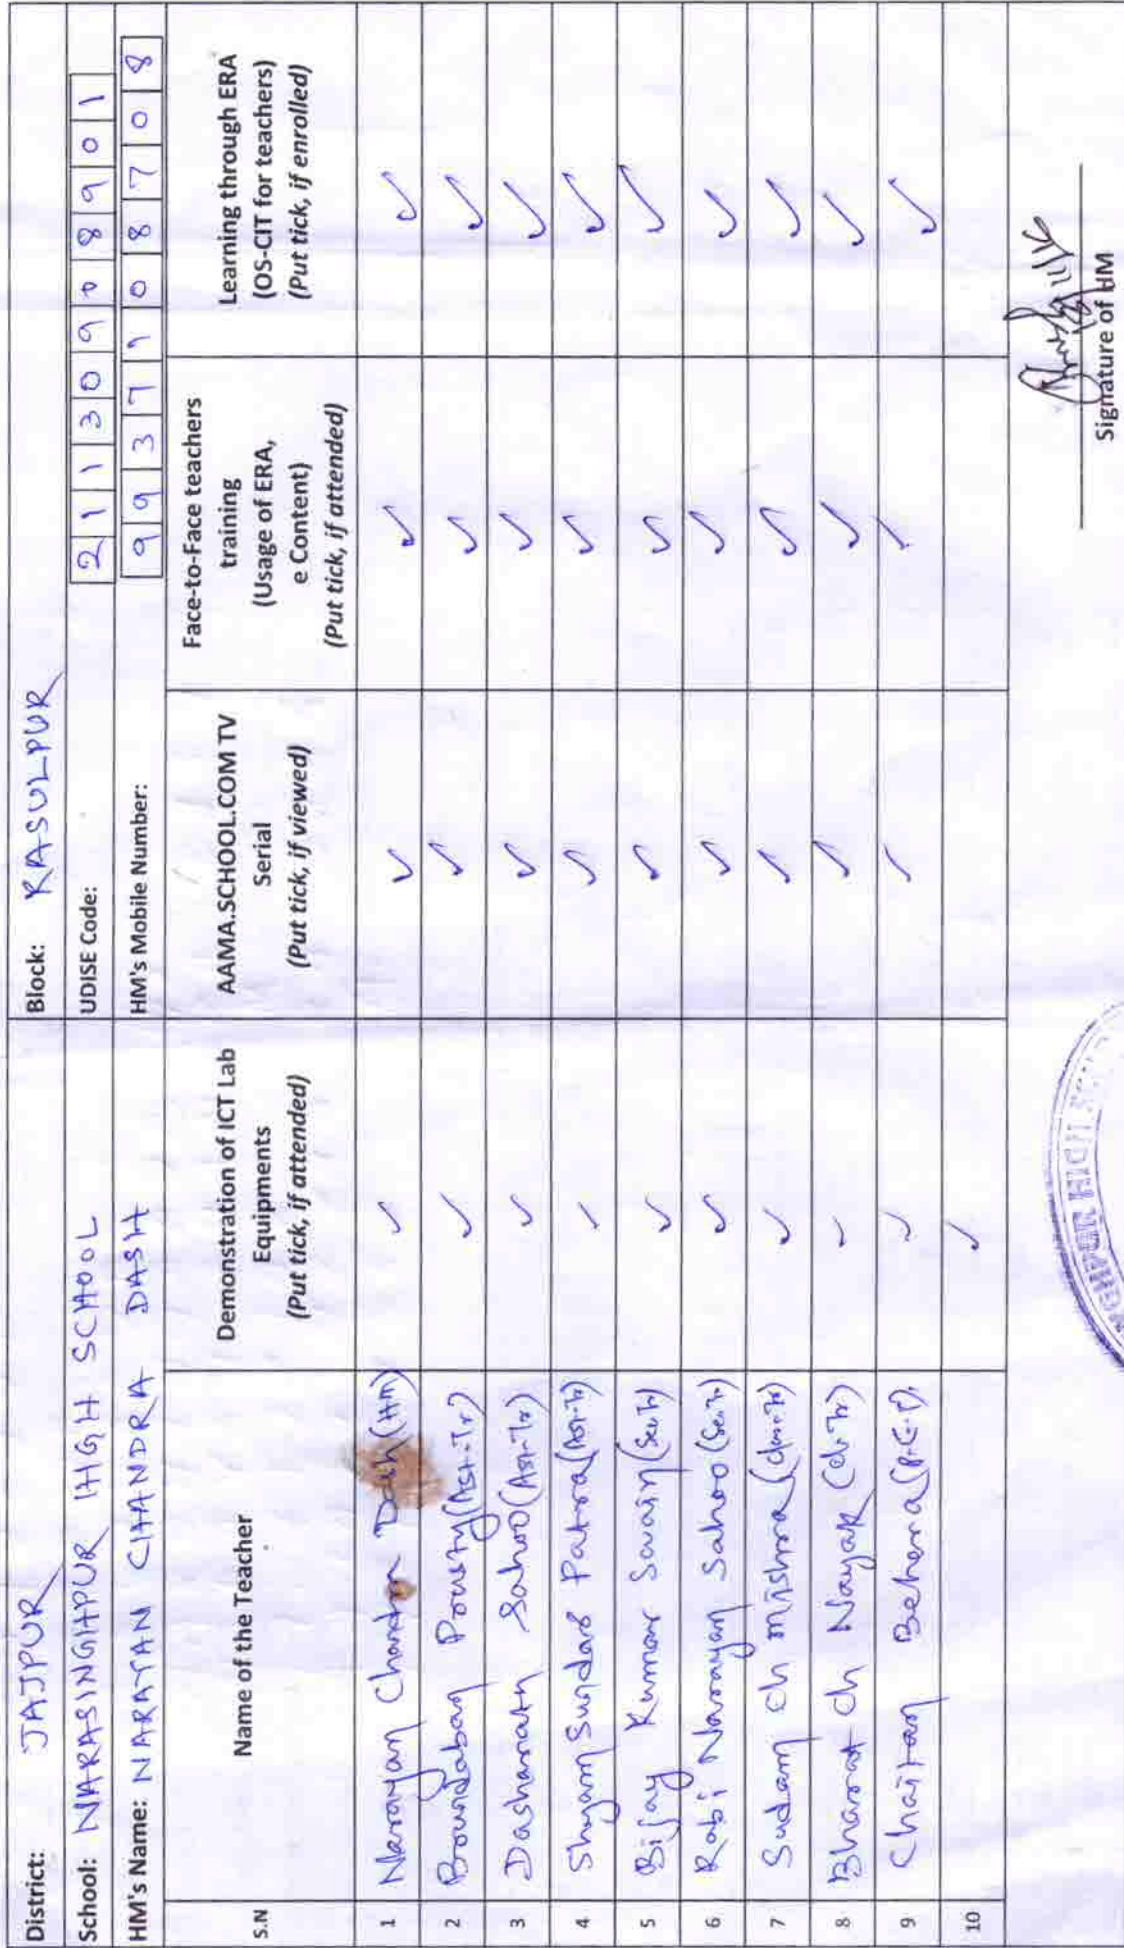 District: JAJPUR Block: RASULPUR
School: NARASINGHPUR HIGH SCHOOL UDISE Code: 21130908901
HM's Name: NARAYAN CHANDRA DASH HM's Mobile Number: 9937908708
S.N Name of the Teacher Demonstration of ICT Lab Equipments (Put tick, if attended) AAMA.SCHOOL.COM TV Serial (Put tick, if viewed) Face-to-Face teachers training (Usage of ERA, e Content) (Put tick, if attended) Learning through ERA (OS-CIT for teachers) (Put tick, if enrolled)
1 Narayan Chandra Dash (HM) ✓ ✓ ✓ ✓
2 Broundaban (Asst-Tr) ✓ ✓ ✓ ✓
3 Dasharath Sahoo (Asst-Tr) ✓ ✓ ✓ ✓
4 Shyam Sundar Patra (Asst-Tr) ✓ ✓ ✓ ✓
5 Bijay Kumar Swain (Sc.Tr) ✓ ✓ ✓ ✓
6 Rabi Narayan Sahoo (Sc.Tr) ✓ ✓ ✓ ✓
7 Sudam ch Mishra ✓ ✓ ✓ ✓
8 Bharat ch Nayak (cl.Tr) ✓ ✓ ✓ ✓
9 Chaitan Behera (P.E.T). ✓ ✓ ✓ ✓
10 ✓
Signature of HM
HIGH